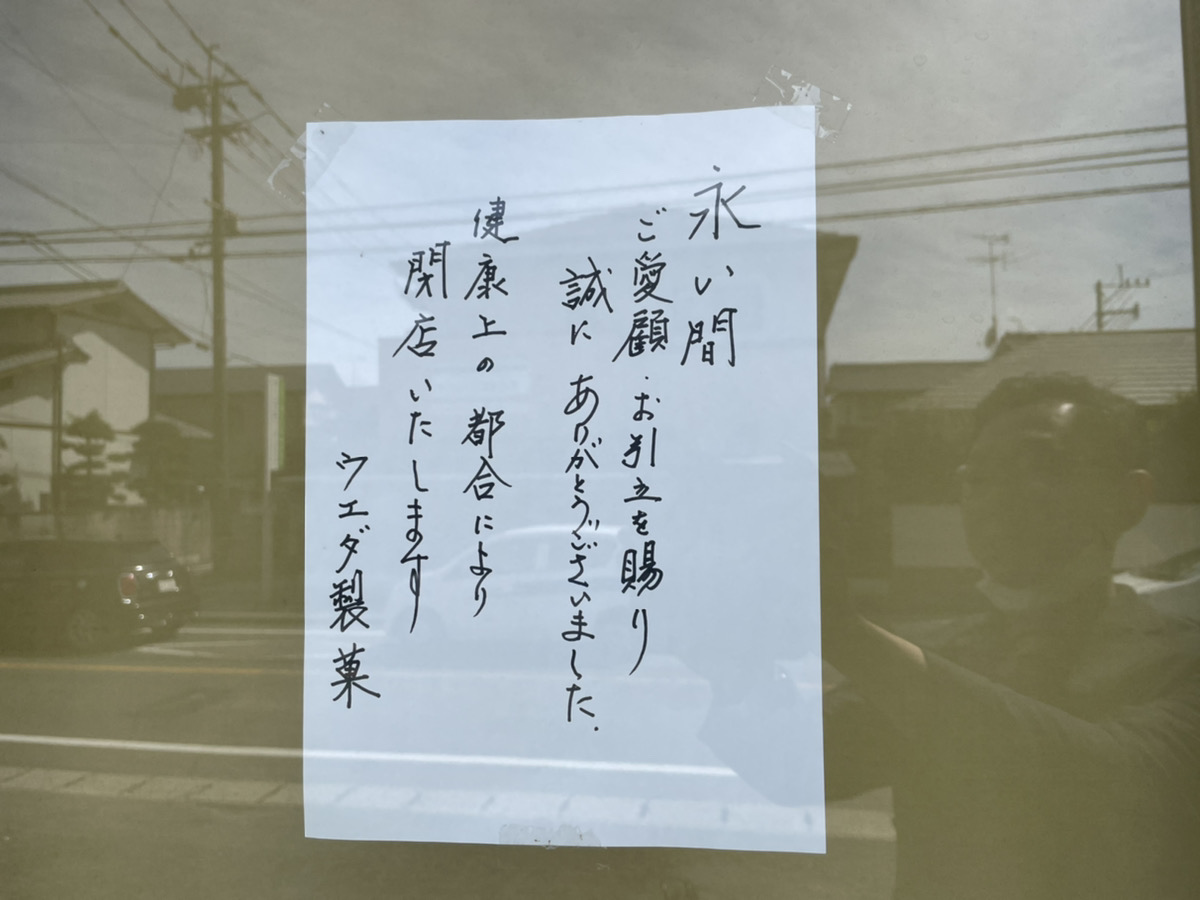 永い間
ご愛顧・お引立を賜り
誠に ありがとうございました.
健康上の都合により
閉店いたします
ウエダ製菓